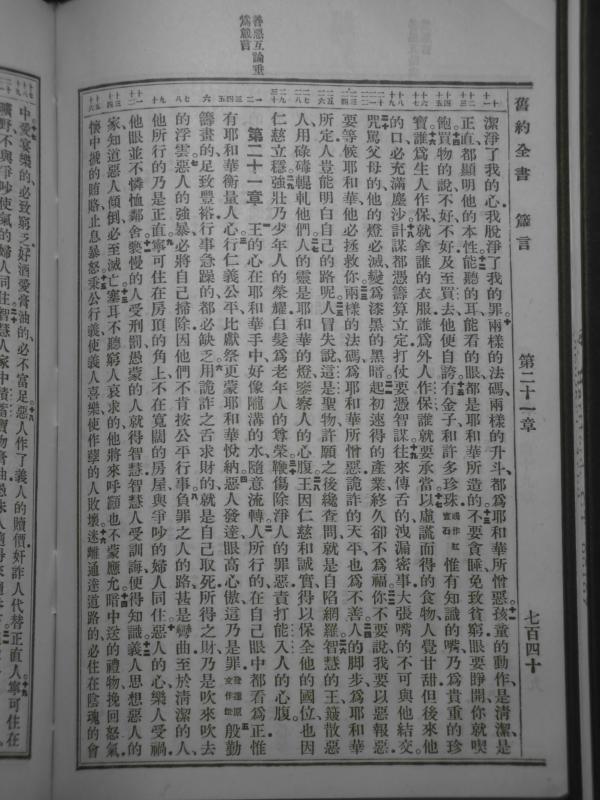 舊約全書　箴言　第二十一章　七百四十
善惡互論垂
爲箴言
潔淨了我的心我脫淨了我的罪兩樣的法碼兩樣的升斗都爲耶和華所憎惡孩童的動作是清潔是
正直都顯明他的本性能聽的耳能看的眼都是耶和華所造的不要貪睡免致貧窮眼要睜開你就喫
飽買物的說不好不好及至買去他便自誇有金子和許多珍珠惟有知識的嘴乃爲貴重的珍
寶誰爲生人作保就拿誰的衣服誰爲外人作保誰就要承當以虛謊而得的食物人覺甘甜但後來他
的口必充滿塵沙計謀都憑籌算立定打仗要憑智謀往來傳舌的洩漏密事大張嘴的不可與他結交
咒罵父母的他的燈必滅變爲漆黑的黑暗起初速得的產業終久卻不爲福你不要說我要以惡報惡
要等候耶和華他必拯救你兩樣的法碼爲耶和華所憎惡詭詐的天平也爲不善人的腳步爲耶和華
所定人豈能明白自己的路呢人冒失說這是聖物許願之後纔查問就是自陷網羅智慧的王簸散惡
人用碌碡輥軋他們人的靈是耶和華的燈鑒察人的心腹王因仁慈和誠實得以保全他的國位也因
仁慈立穩強壯乃少年人的榮耀白髮爲老年人的尊榮鞭傷除淨人的罪惡責打能入人的心腹
第二十一章　王的心在耶和華手中好像隴溝的水隨意流轉人所行的在自己眼中都看爲正惟
有耶和華衡量人心行仁義公平比獻祭更蒙耶和華悅納惡人發達眼高心傲這乃是罪發達原文作燈殷勤
籌畫的足致豐裕行事急躁的都必缺乏用詭詐之舌求財的就是自己取死所得之財乃是吹來吹去
的浮雲惡人的強暴必將自己掃除因他們不肯按公平行事負罪之人的路甚是彎曲至於清潔的人
他所行的乃是正直寧可住在房頂的角上不在寬闊的房屋與爭吵的婦人同住惡人的心樂人受禍
他眼並不憐恤鄰舍褻慢的人受刑罰愚蒙的人就得智慧智慧人受訓誨便得知識義人思想惡人的
家知道惡人傾倒必至滅亡塞耳不聽窮人哀求的他將來呼籲也不蒙應允暗中送的禮物挽回怒氣
懷中搋的賄賂止息暴怒秉公行義使義人喜樂使作孽的人敗壞迷離通達道路的必住在陰魂的會
中愛宴樂的必致窮乏好酒愛膏油的必不富足惡人作了義人的贖價奸詐人代替正直人寧可住在
曠野不與爭吵使氣的婦人同住智慧人家中積蓄寶物膏油愚昧人隨得來隨